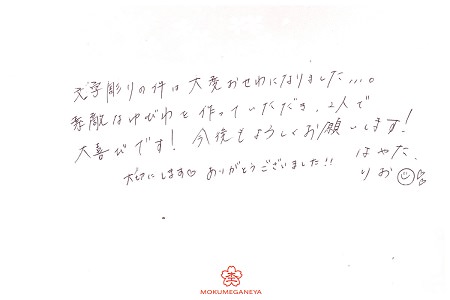 文字彫りの件は大変おせわになりました…。
素敵なゆびわを作っていただき、2人で
大喜びです！ 今後もよろしくお願いします！
大切にします♡ ありがとうございました!! はやた、
りお
MOKUMEGANEYA